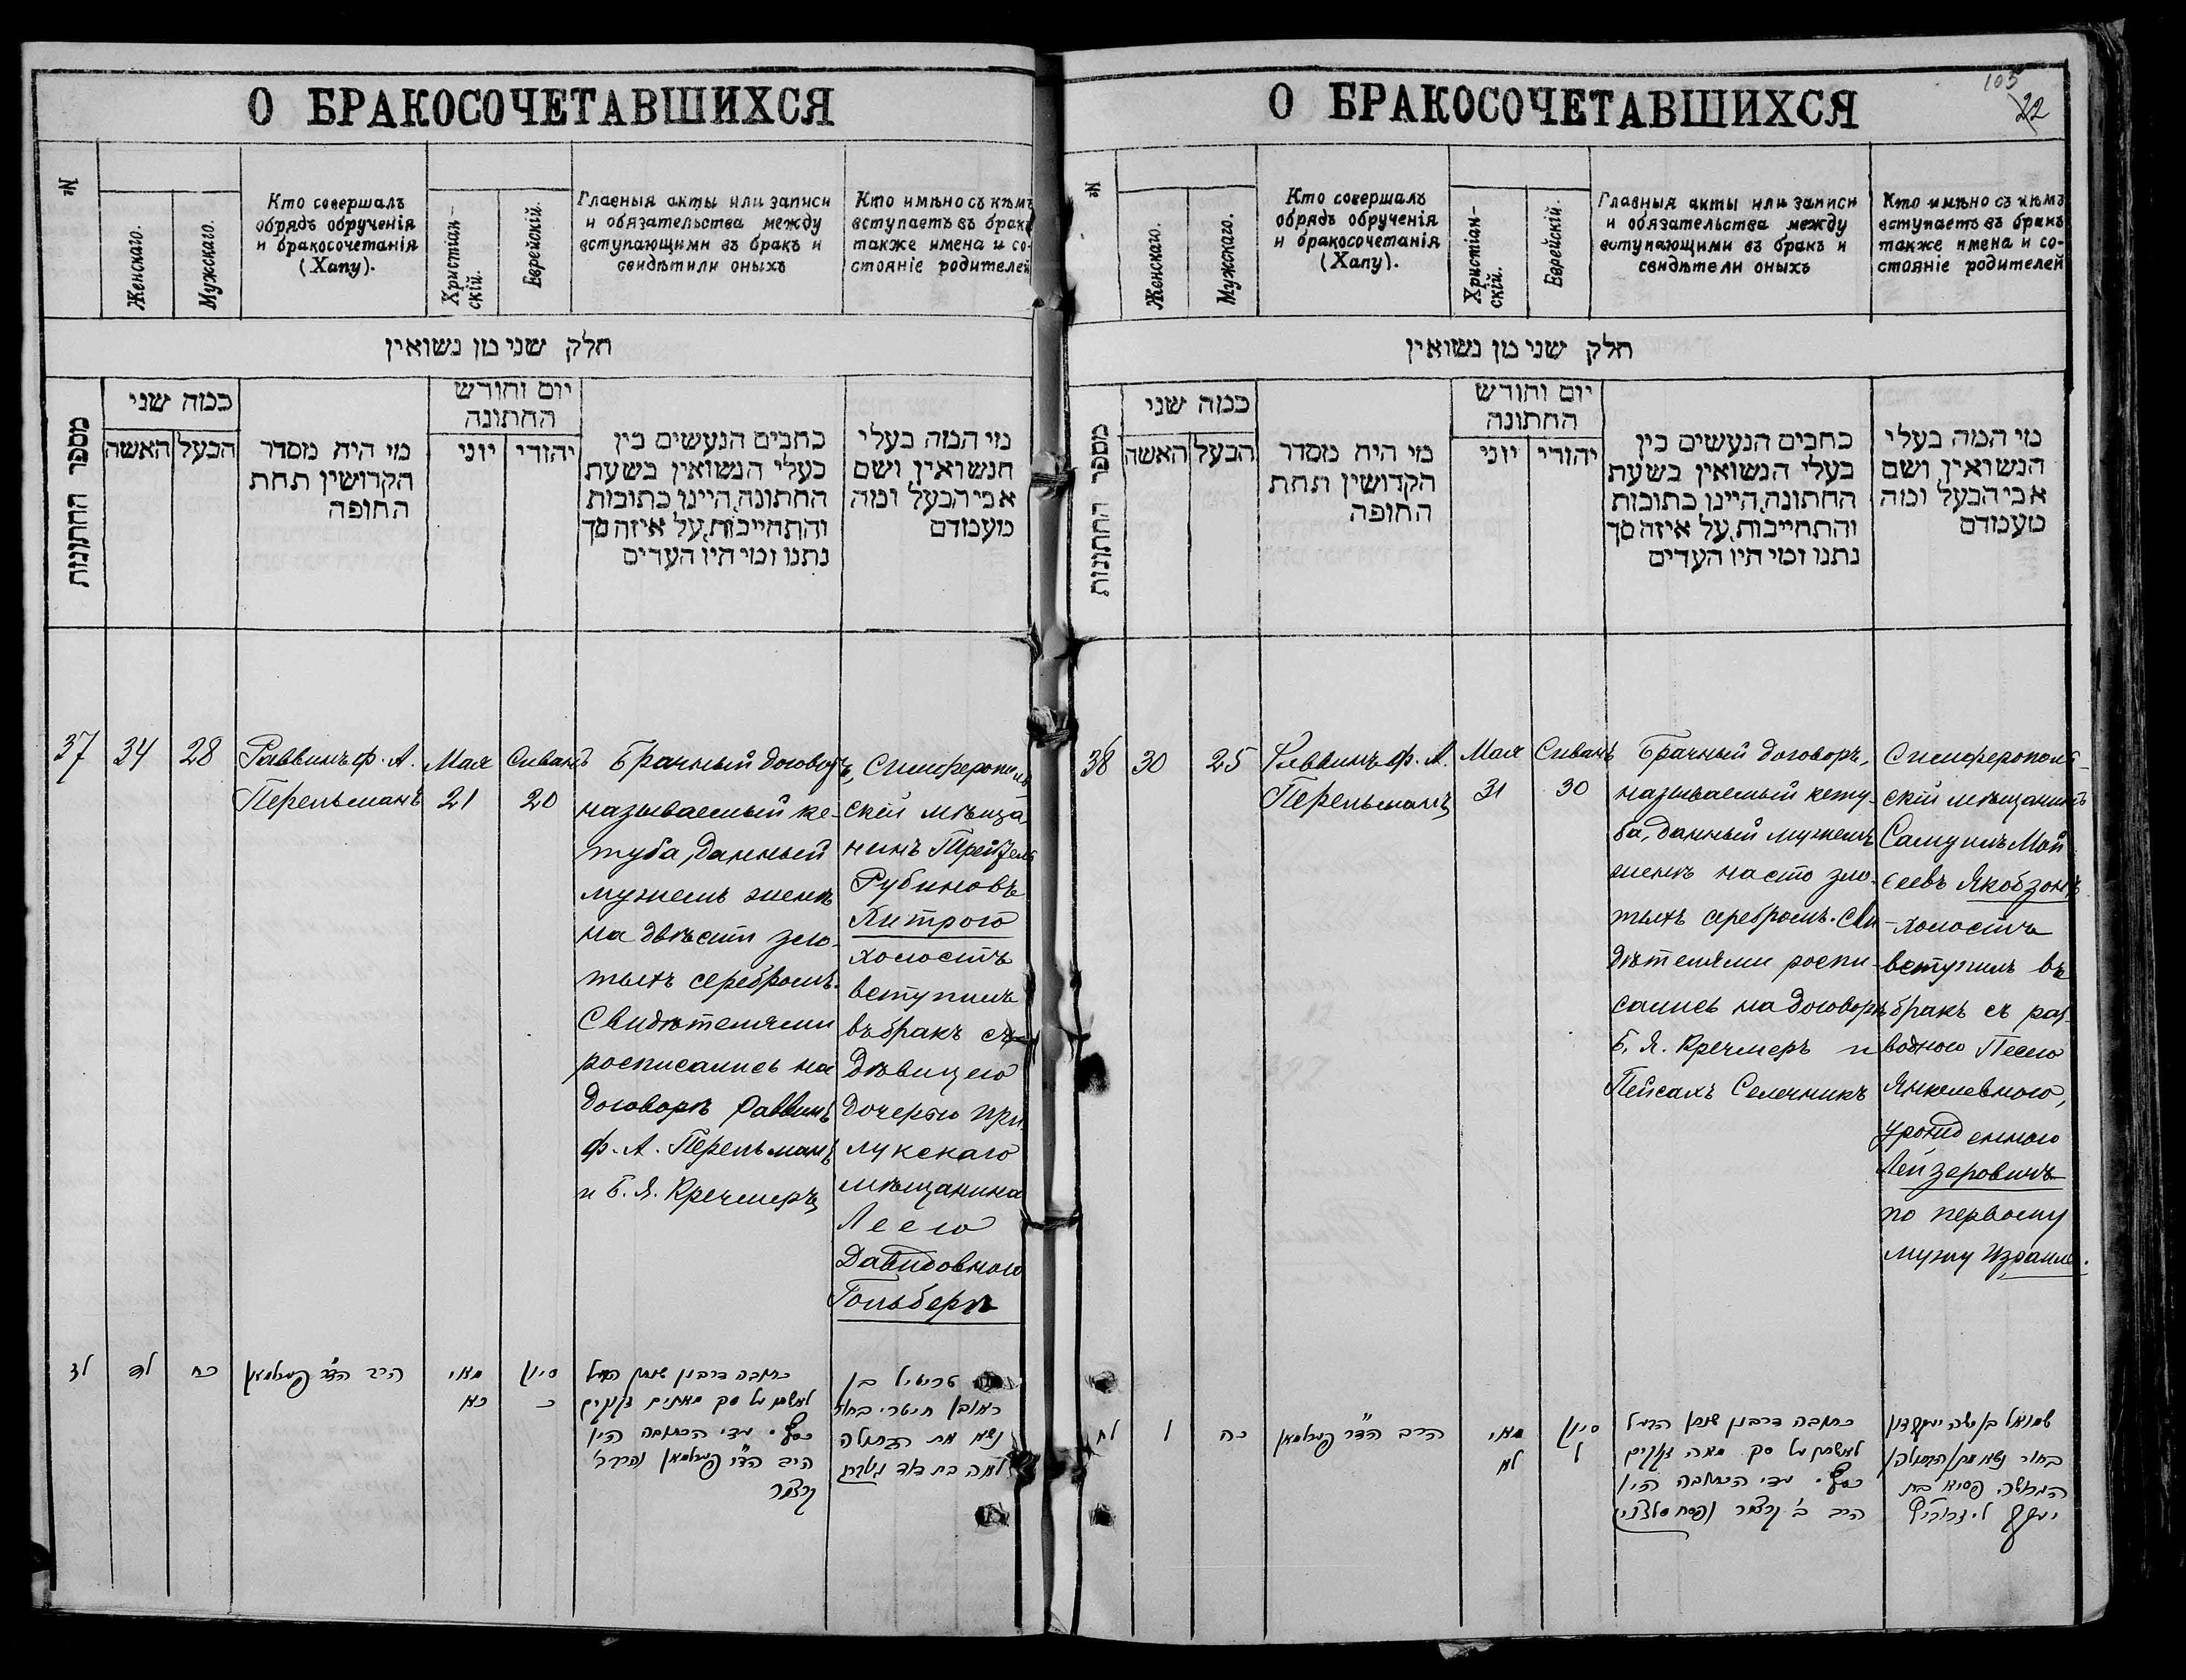 О БРАКОСОЧЕТАВШИХСЯ
№
Женскаго.
Мужскаго.
Кто совершалъ
обрядъ обрученія
и бракосочетанія
(Хапу).
Христіан-
скій.
Еврейскій.
Главныя акты или записи
и обязательства между
вступающими въ бракъ и
свидѣтили оныхъ
Кто имѣно съ кѣмъ
вступаетъ въ бракъ
также имена и со-
стояніе родителей
חלק שני מן נשואין
מספר החתונות
כמה שני
האשה
הבעל
מי היה מסדר
הקדושין תחת
החופה
יום וחורש
החתונה
יוני
יהודי
כתבים הנעשים בין
בעלי הנשואין בשעת
החתונה, היינו כתובות
והתחייבות, על איזה סך
נתנו ומי היו העדים
מי המה בעלי
הנשואין ושם
אבי הבעל ומה
מעמדם
37
34
28
Раввинъ ф. А.
Перельманъ
Мая
21
Сиванъ
20
Брачный договоръ,
называемый ке-
туба, данный
мужемъ женѣ
на двѣсти зло-
тыхъ серебромъ.
Свидѣтелями
росписались на
договорѣ Раввинъ
ф. А. Перельманъ
и Б. Я. Кречмеръ
Симферополь
скій мѣща
нинъ Трейтель
Рубиновъ
Хитрого
холостъ
вступилъ
въ бракъ съ
дѣвицею
дочерью При
лукскаго
мѣщанина
Леею
Давидовною
Гольбергъ
לז
לד
כח
הרב הד״ר פערלמאן
מאי
כא
סיון
כ
כתובה דרבנן שנתן הבעל
לאשתו על סך מאתים זקוקים
כסף. עדי הכתובה היו
הרב הד״ר פערלמאן
קרצמר
טרייטיל בן
ראובן חיטרי בחור
נשא את הבתולה
לאה בת דוד
О БРАКОСОЧЕТАВШИХСЯ
105
22
№
Женскаго.
Мужскаго.
Кто совершалъ
обрядъ обрученія
и бракосочетанія
(Хапу).
Христіан-
скій.
Еврейскій.
Главныя акты или записи
и обязательства между
вступающими въ бракъ и
свидѣтели оныхъ
Кто имѣно съ кѣмъ
вступаетъ въ бракъ
также имена и со-
стояніе родителей
חלק שני מן נשואין
מספר החתונות
כמה שני
האשה
הבעל
מי היה מסדר
הקדושין תחת
החופה
יום וחורש
החתונה
יוני
יהודי
כתבים הנעשים בין
בעלי הנשואין בשעת
החתונה, היינו כתובות
והתחייבות, על איזה סך
נתנו ומי היו העדים
מי המה בעלי
הנשואין ושם
אבי הבעל ומה
מעמדם
38
30
25
Раввинъ ф. А.
Перельманъ
Мая
31
Сиванъ
30
Брачный договоръ,
называемый кету-
ба, данный мужемъ
женѣ на сто зло-
тыхъ серебромъ. Сви
дѣтелями роспи-
сались на договорѣ
Б. Я. Кречмеръ и
Пейсахъ Селечникъ
Симферополь-
скій мѣщанинъ
Самуилъ Мой
сеевъ Якобзонъ
- холостъ
вступилъ въ
бракъ съ раз-
водною Песею
Янкелевною,
урожденною
Лейзеровичъ
по первому
мужу Израиль.
לח
ל
כה
הרב הד״ר פערלמאן
מאי
לא
סיון
ל
כתובה דרבנן שנתן הבעל
לאשתו על סך מאה זקוקים
כסף. עדי הכתובה היו
הרב ב׳ קרצמר ופסח סלצניק
שמואל בן משה יעקבזון
בחור נשא את
המגורשה פסיא בת
יעקב ליזרוביץ